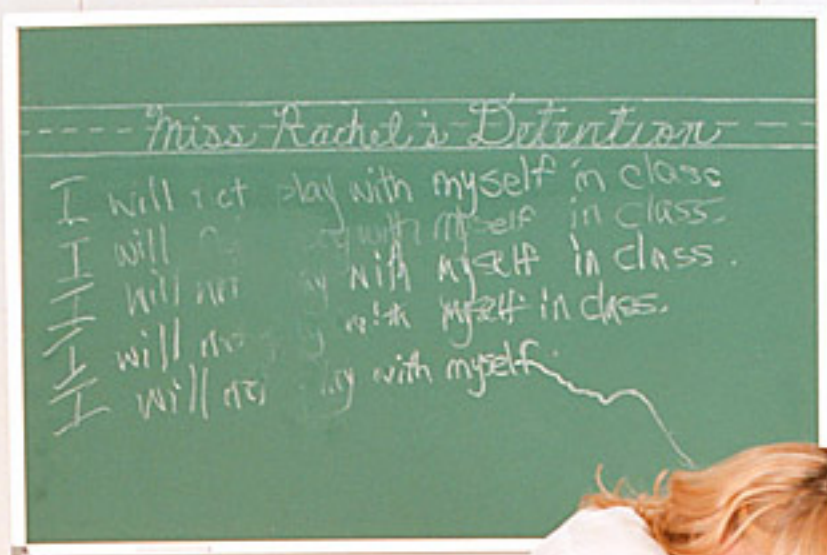 Miss Rachel's Detention
I will not play with myself in class
I will with myself in class.
I will not play with myself in class.
I will not with myself in class.
I will not play with myself